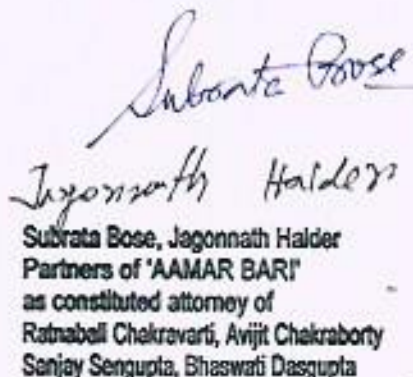 Subrata Bose
Jagonnath Halder
Subrata Bose, Jagonnath Halder
Partners of 'AAMAR BARI'
as constituted attorney of
Ratnabali Chakravarti, Avijit Chakraborty
Sanjay Sengupta, Bhaswati Dasgupta